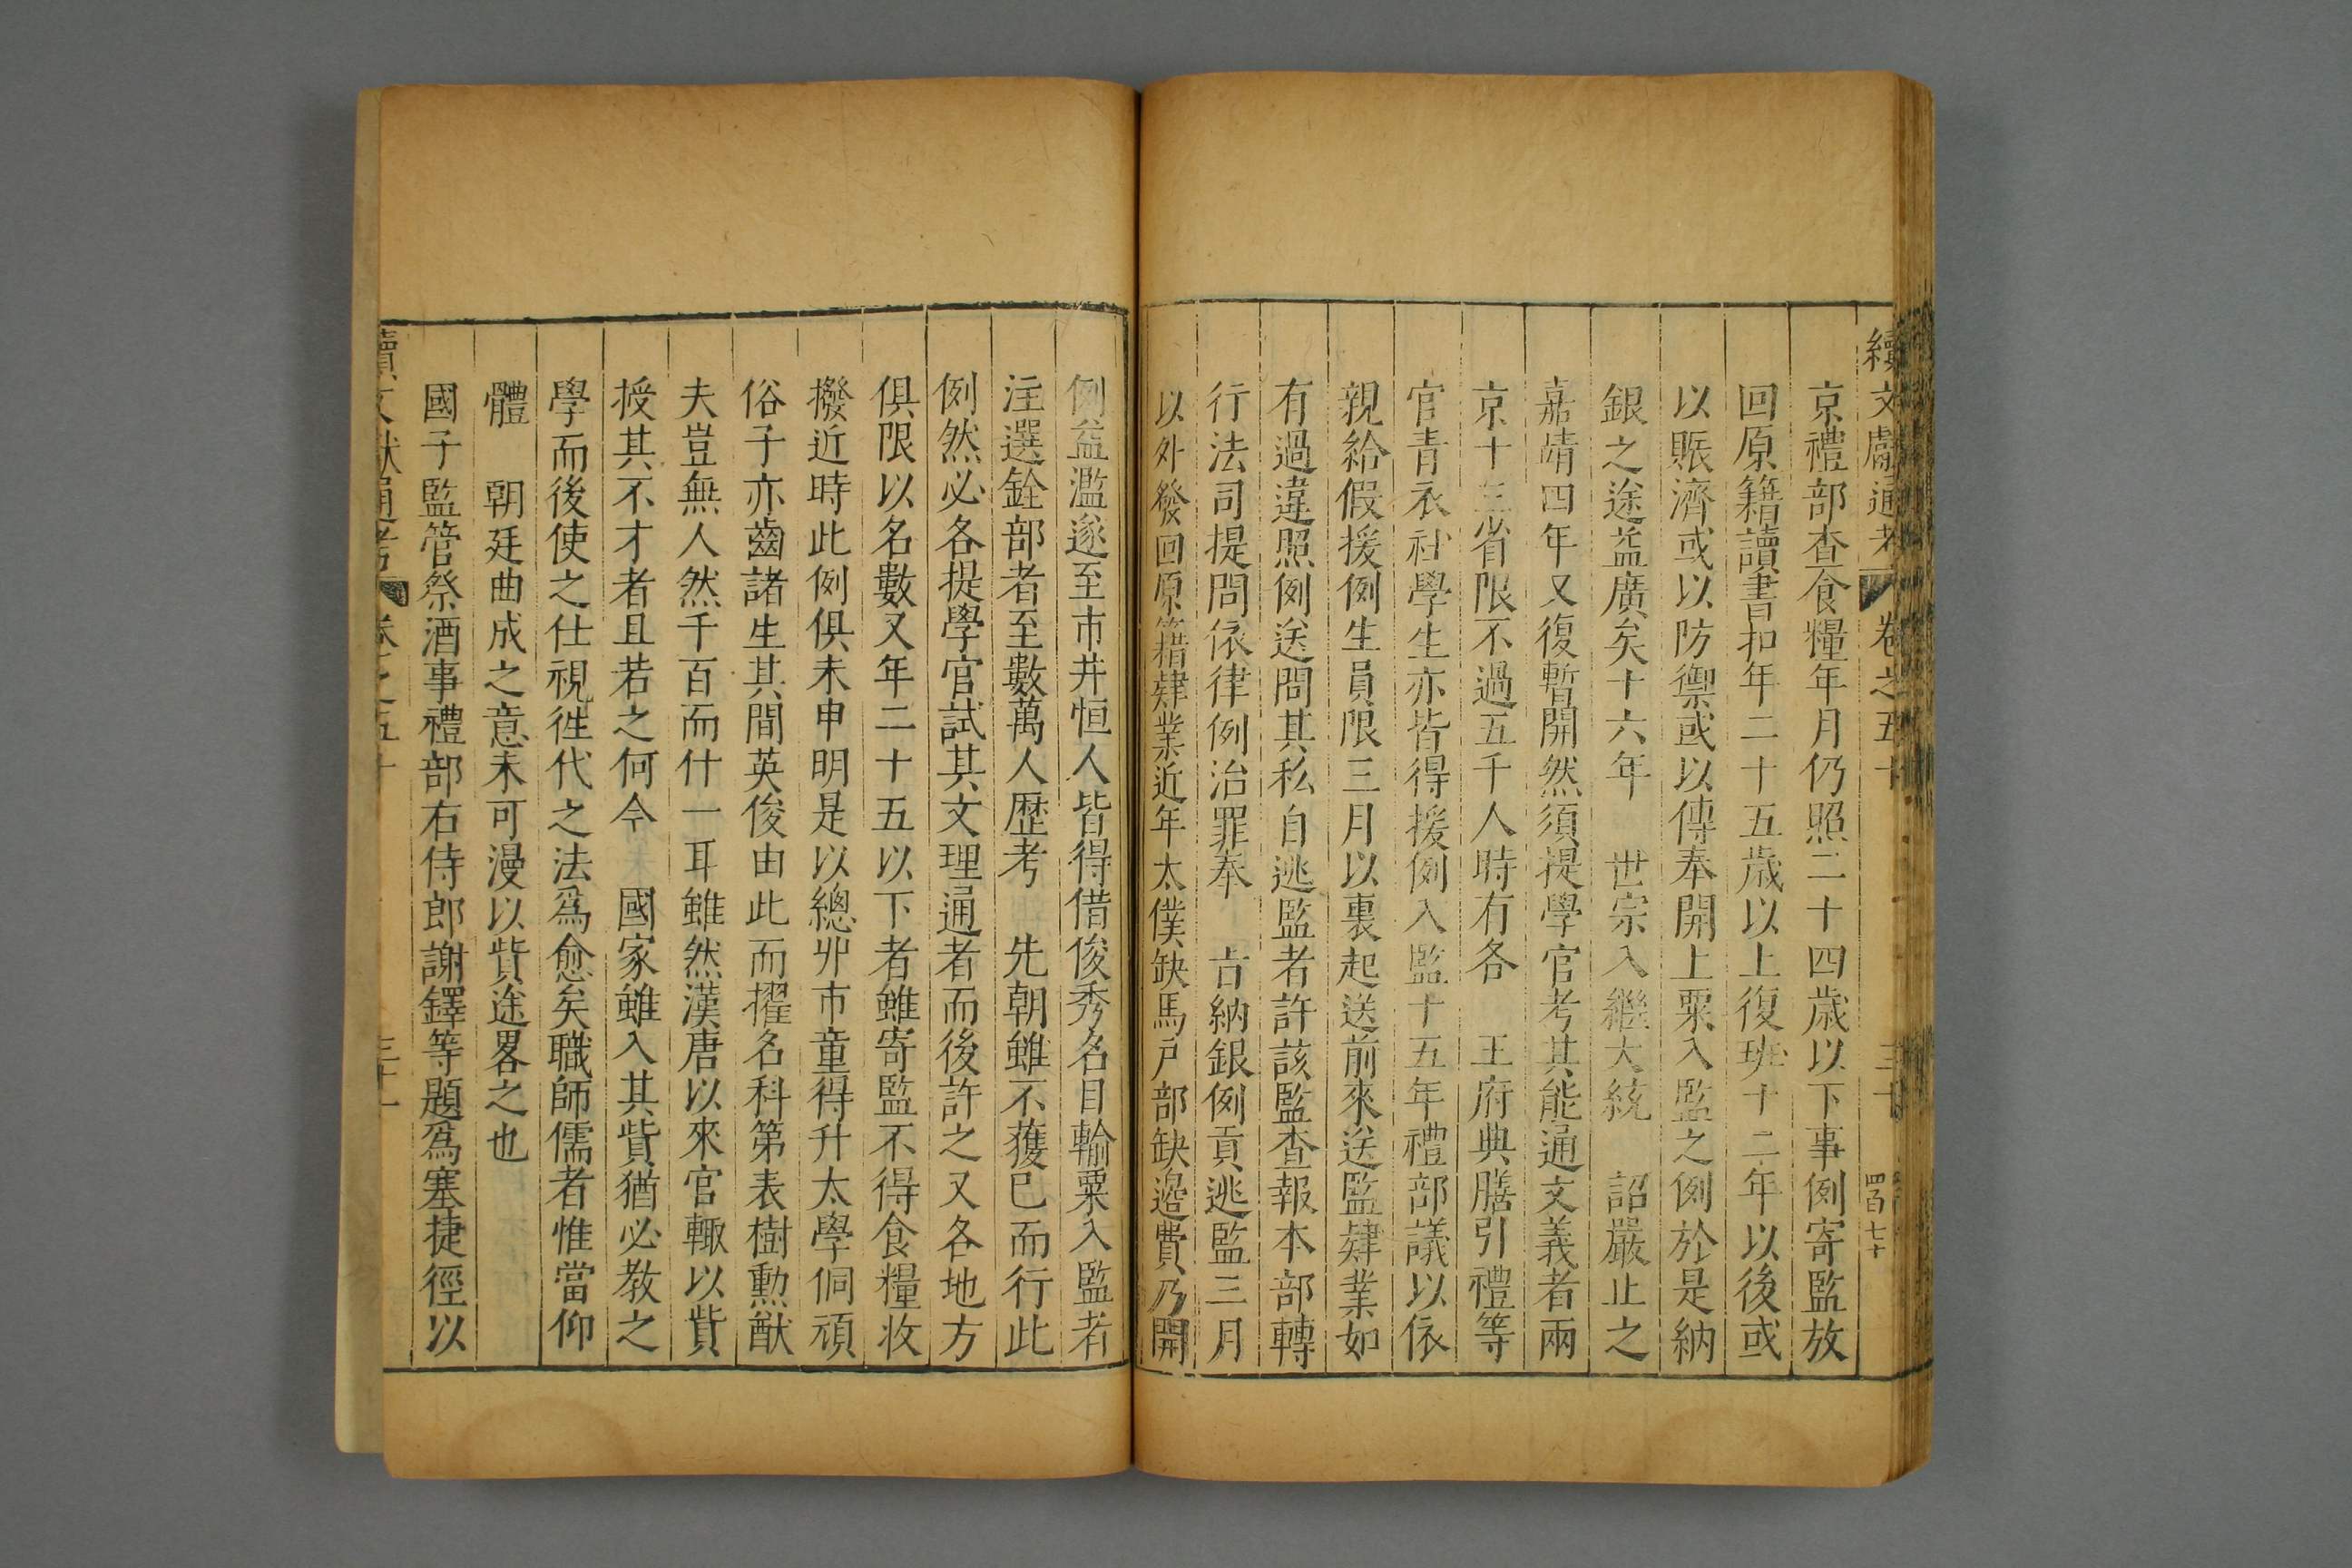 續文獻通考 卷之五十 三十 四百七十
京禮部查食糧年月仍照二十四歲以下事例寄監放
回原籍讀書扣年二十五歲以上復班十二年以後或
以賑濟或以防禦或以傳奉開上粟入監之例於是納
銀之途益廣矣十六年 世宗入繼大統 詔嚴止之
嘉靖四年又復暫開然須提學官考其能通文義者兩
京十三省限不過五千人時有各 王府典膳引禮等
官青衣社學生亦皆得援例入監十五年禮部議以依
親給假援例生員限三月以裏起送前來送監肄業如
有過違照例送問其私自逃監者許該監查報本部轉
行法司提問依律例治罪奉 旨納銀例貢逃監三月
以外發回原籍肄業近年太僕缺馬戶部缺邊費乃開
例益濫遂至市井恒人皆得借俊秀名目輸粟入監者
注選銓部者至數萬人歷考 先朝雖不獲已而行此
例然必各提學官試其文理通者而後許之又各地方
俱限以名數又年二十五以下者雖寄監不得食糧收
撥近時此例俱未申明是以總丱市童得升太學侗頑
俗子亦齒諸生其間英俊由此而擢名科第表樹勳猷
夫豈無人然千百而什一耳雖然漢唐以來官輙以貲
授其不才者且若之何今 國家雖入其貲猶必教之
學而後使之仕視徃代之法爲愈矣職師儒者惟當仰
體 朝廷曲成之意未可漫以貲途畧之也
國子監管祭酒事禮部右侍郎謝鐸等題爲塞捷徑以
續文獻通考 卷之五十 三十一